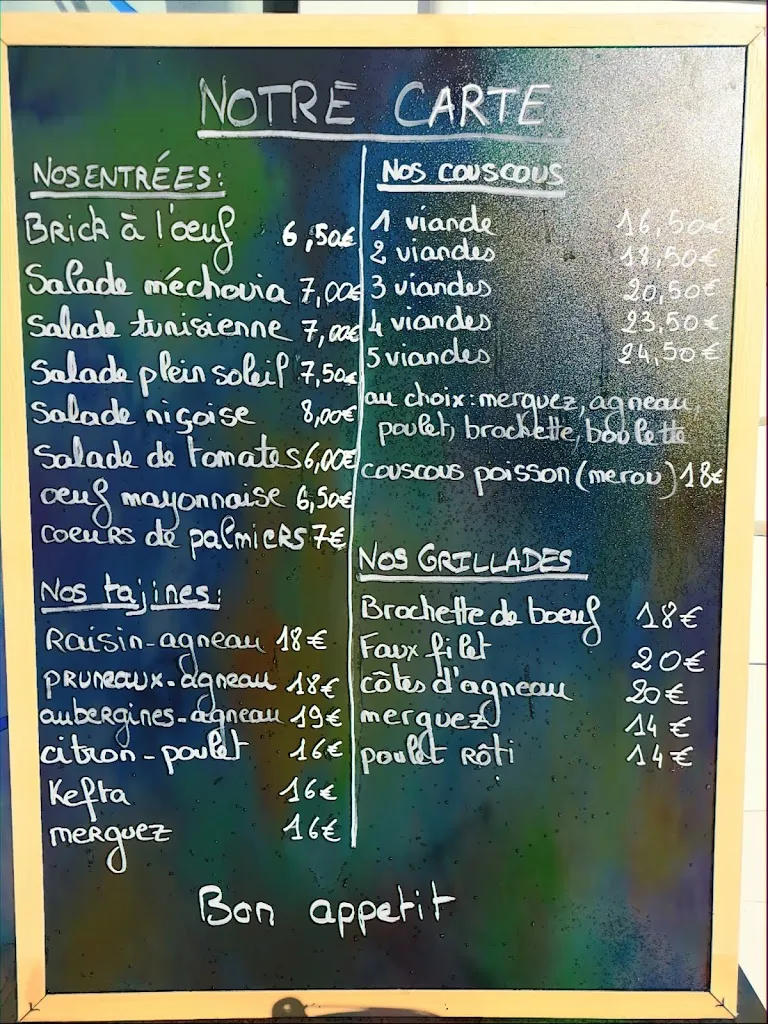 NOTRE CARTE
NOS ENTRÉES:
Brick à l'oeuf 6,50€
Salade méchouia 7,00€
Salade tunisienne 7,00€
Salade plein soleil 7,50€
Salade niçoise 8,00€
Salade de tomates 6,00€
oeuf mayonnaise 6,50€
coeurs de palmiers 7€
Nos tajines:
Raisin-agneau 18€
pruneaux-agneau 18€
aubergines-agneau 19€
citron-poulet 16€
Kefta 16€
merguez 16€
NOS COUSCOUS
1 viande 16,50€
2 viandes 18,50€
3 viandes 20,50€
4 viandes 23,50€
5 viandes 24,50€
au choix: merguez, agneau,
poulet, brochette, boulette
couscous poisson (merou) 18€
NOS GRILLADES
Brochette de boeuf 18€
Faux filet 20€
côtes d'agneau 20€
merguez 14€
poulet Rôti 14€
Bon appetit